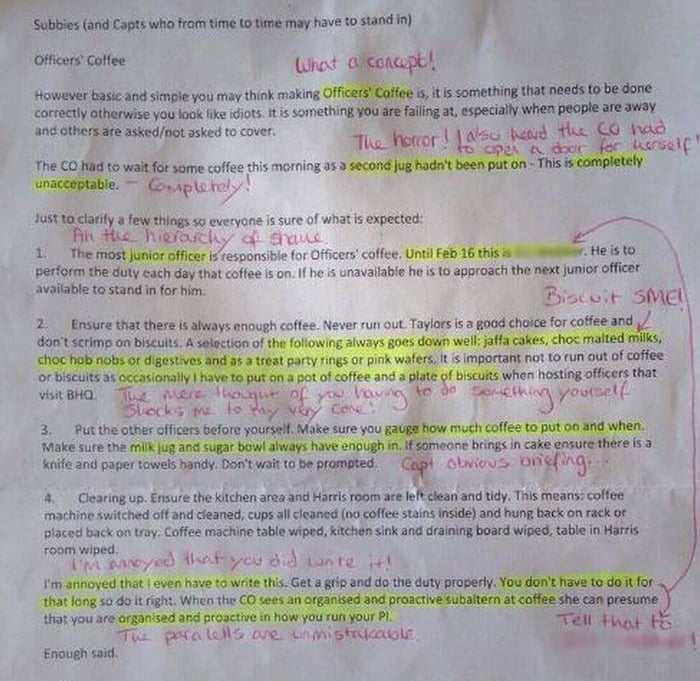 Subbies (and Capts who from time to time may have to stand in)
Officers' Coffee
What a concept!
However basic and simple you may think making Officers' Coffee is, it is something that needs to be done
correctly otherwise you look like idiots. It is something you are failing at, especially when people are away
and others are asked/not asked to cover.
The horror! I also heard the CO had
to open a door for herself!
The CO had to wait for some coffee this morning as a second jug hadn't been put on - This is completely
unacceptable. - Completely!
Just to clarify a few things so everyone is sure of what is expected:
Ah the hierarchy of shame
1. The most junior officer is responsible for Officers' coffee. Until Feb 16 this is r. He is to
perform the duty each day that coffee is on. If he is unavailable he is to approach the next junior officer
available to stand in for him.
Biscuit SME!
2. Ensure that there is always enough coffee. Never run out. Taylors is a good choice for coffee and
don't scrimp on biscuits. A selection of the following always goes down well: jaffa cakes, choc malted milks,
choc hob nobs or digestives and as a treat party rings or pink wafers. It is important not to run out of coffee
or biscuits as occasionally I have to put on a pot of coffee and a plate of biscuits when hosting officers that
visit BHQ. The mere thought of you having to do something yourself
shocks me to my very core!
3. Put the other officers before yourself. Make sure you gauge how much coffee to put on and when.
Make sure the milk jug and sugar bowl always have enough in. If someone brings in cake ensure there is a
knife and paper towels handy. Don't wait to be prompted. Capt obvious briefing...
4. Clearing up. Ensure the kitchen area and Harris room are left clean and tidy. This means: coffee
machine switched off and cleaned, cups all cleaned (no coffee stains inside) and hung back on rack or
placed back on tray. Coffee machine table wiped, kitchen sink and draining board wiped, table in Harris
room wiped.
I'm annoyed that you did write it!
I'm annoyed that I even have to write this. Get a grip and do the duty properly. You don't have to do it for
that long so do it right. When the CO sees an organised and proactive subaltern at coffee she can presume
that you are organised and proactive in how you run your Pl.
Tell that to
!
The paralells are unmistakable.
Enough said.